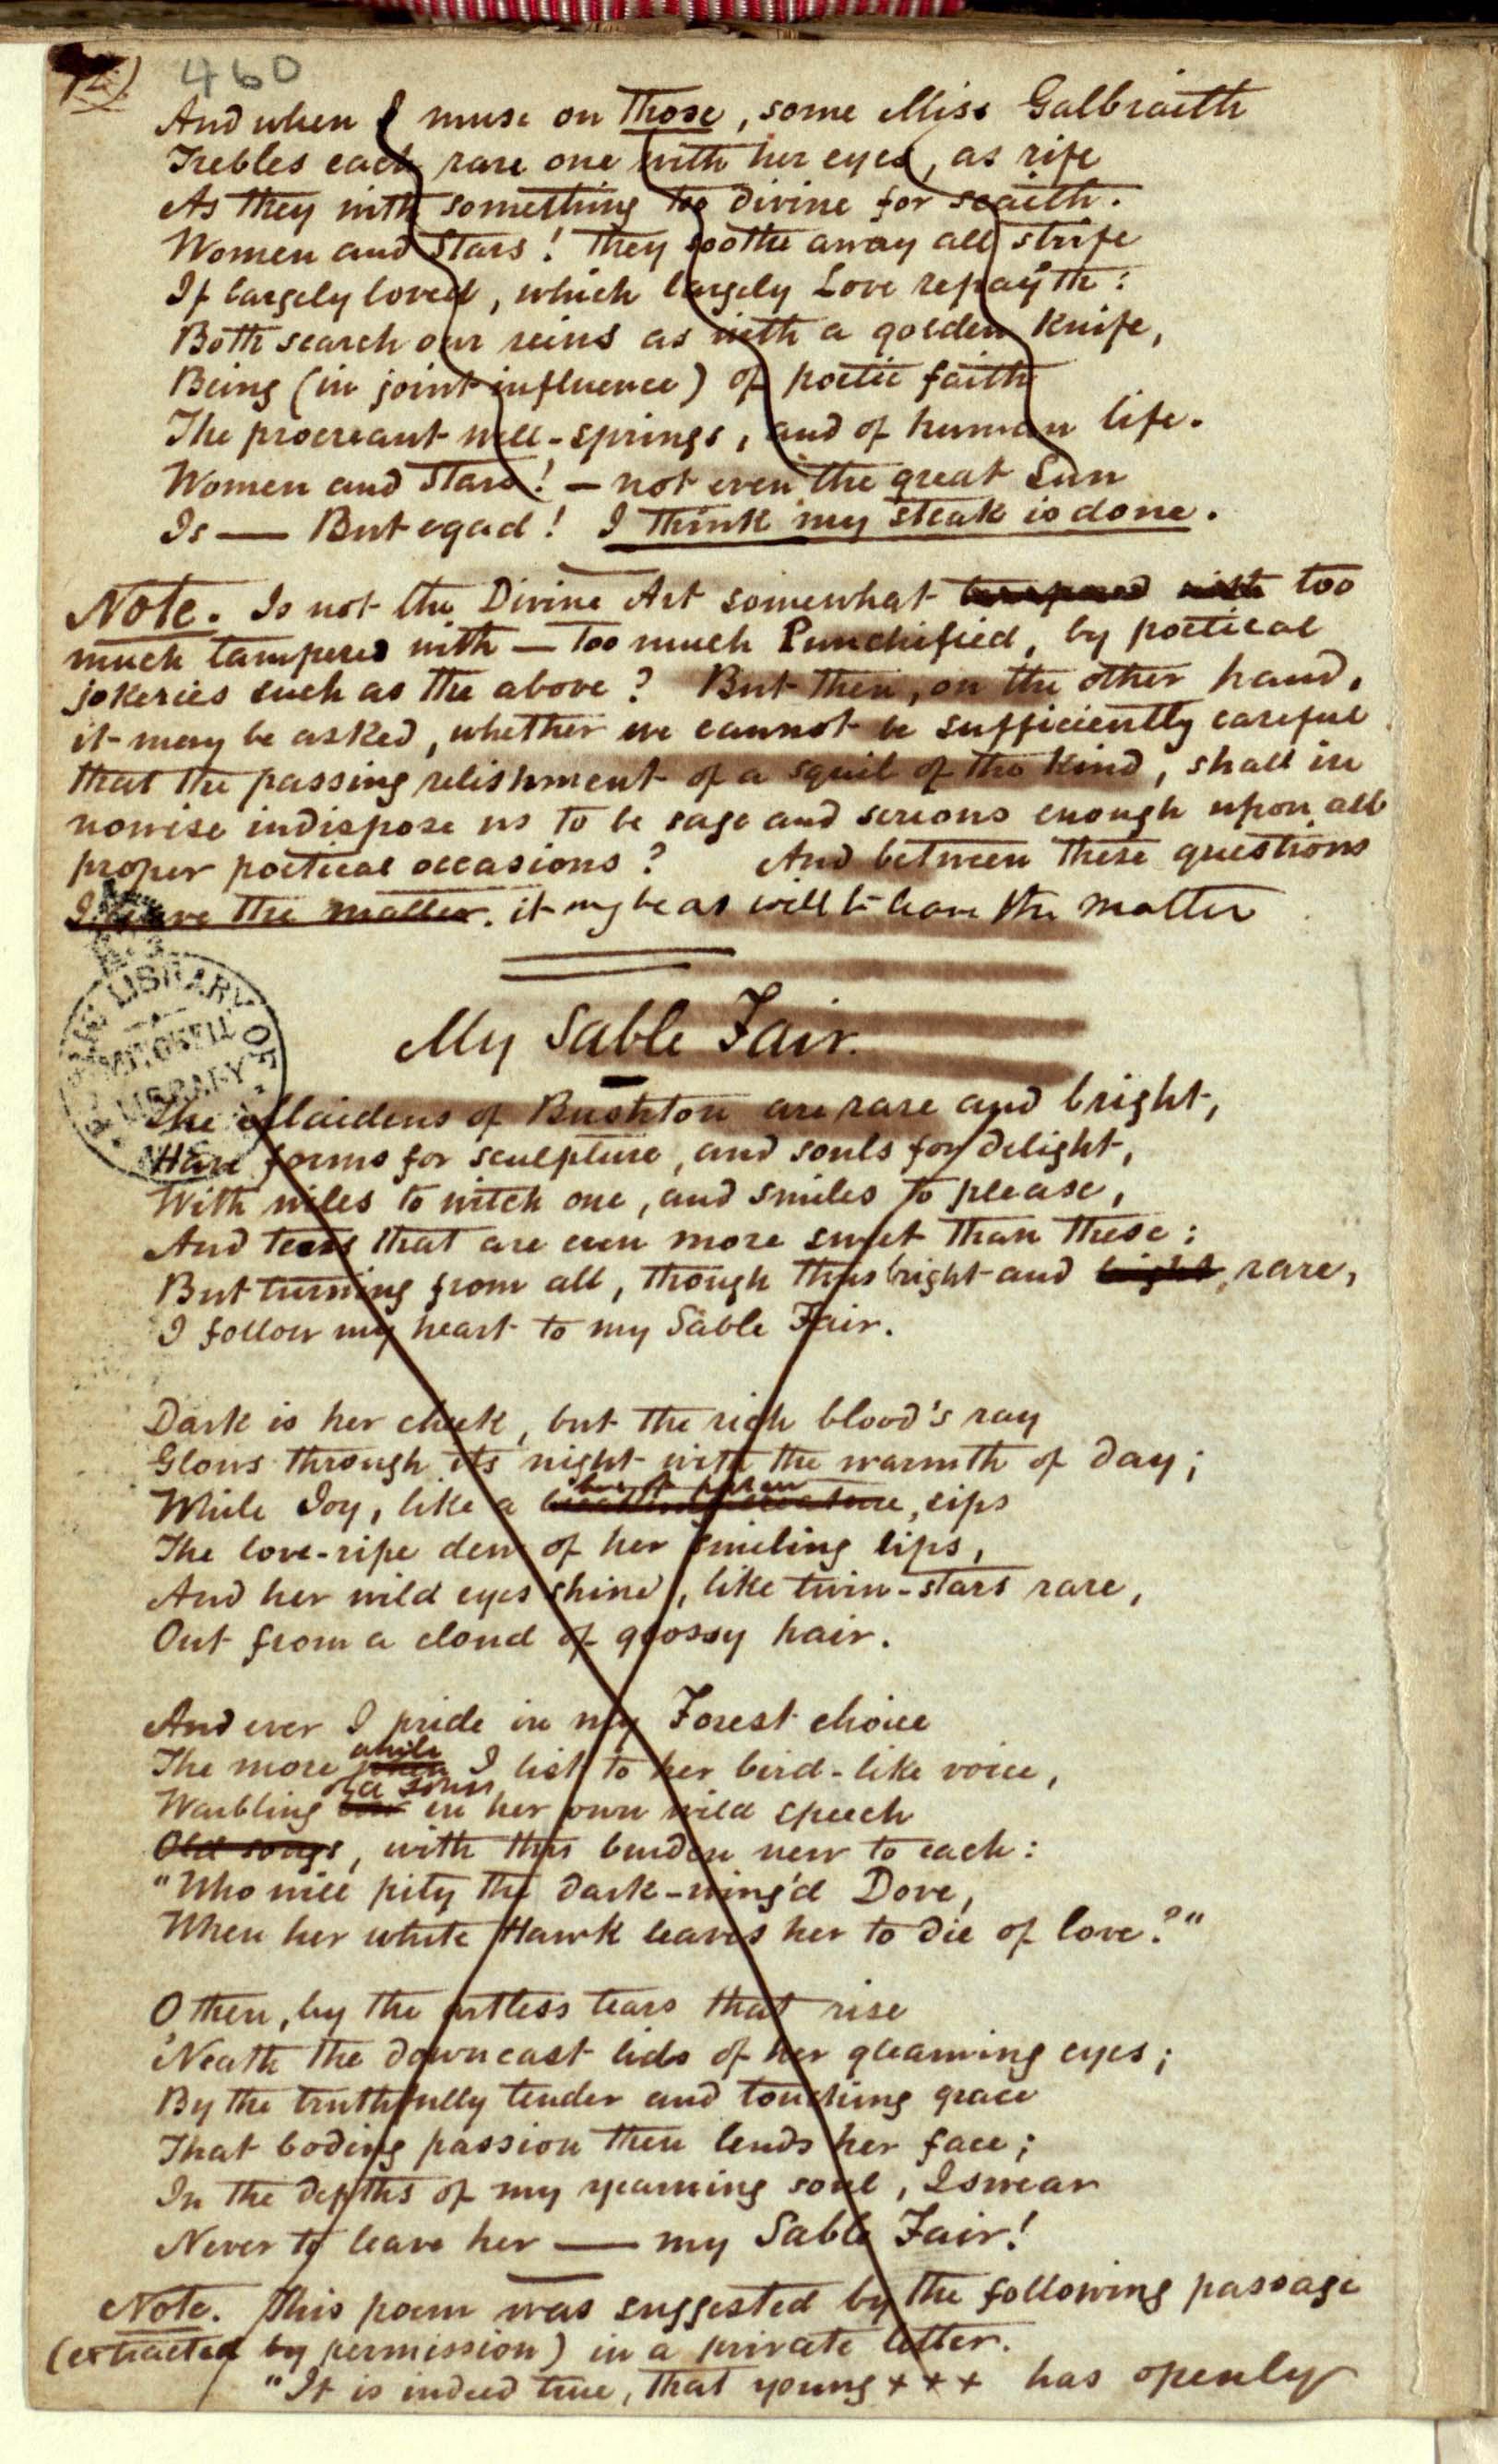 12)
460
And when I muse on those, some Miss Galbraith
Trebles each rare one with her eyes, as rife
As they with something too divine for scaith.
Women and Stars! they soothe away all strife
If largely loved, which largely Love repay'th:
Both search our reins as with a golden knife,
Being (in joint influence) of poetic faith
The procreant well-springs, and of human life.
Women and Stars! — not even the great Sun
Is — But egad! I think my steak is done.
Note. Is not the Divine Art somewhat tampered with too
much tampered with — too much Punchified, by poetical
jokeries such as the above? But then, on the other hand,
it may be asked, whether we cannot be sufficiently careful
that the passing relishment of a squib of the kind, shall in
nowise indispose us to be sage and serious enough upon all
proper poetical occasions? And between these questions
I leave the matter. it may be as well to leave the matter
PUBLIC LIBRARY OF N.S.W.
MITCHELL
LIBRARY
My Sable Fair.
The Maidens of Bushton are rare and bright,
Have forms for sculpture, and souls for delight,
With wiles to witch one, and smiles to please,
And tears that are even more sweet than these:
But turning from all, though thus bright and bright, rare,
I follow my heart to my Sable Fair.
Dark is her cheek, but the rich blood's ray
Glows through its night with the warmth of day;
While Joy, like a breathing creature, sips
The love-ripe dew of her smiling lips,
And her wild eyes shine, like twin-stars rare,
Out from a cloud of glossy hair.
And ever I pride in my Forest choice
while
The more when I list to her bird-like voice,
Warbling in her own wild speech
Old songs, with this burden new to each:
"Who will pity the dark-wing'd Dove,
When her white Hawk leaves her to die of love?"
O then, by the artless tears that rise
'Neath the downcast lids of her gleaming eyes;
By the truthfully tender and touching grace
That boding passion then lends her face;
In the depths of my yearning soul, I swear
Never to leave her — my Sable Fair!
Note. This poem was suggested by the following passage
(extracted by permission) in a private letter.
"It is indeed true, that young + + + has openly